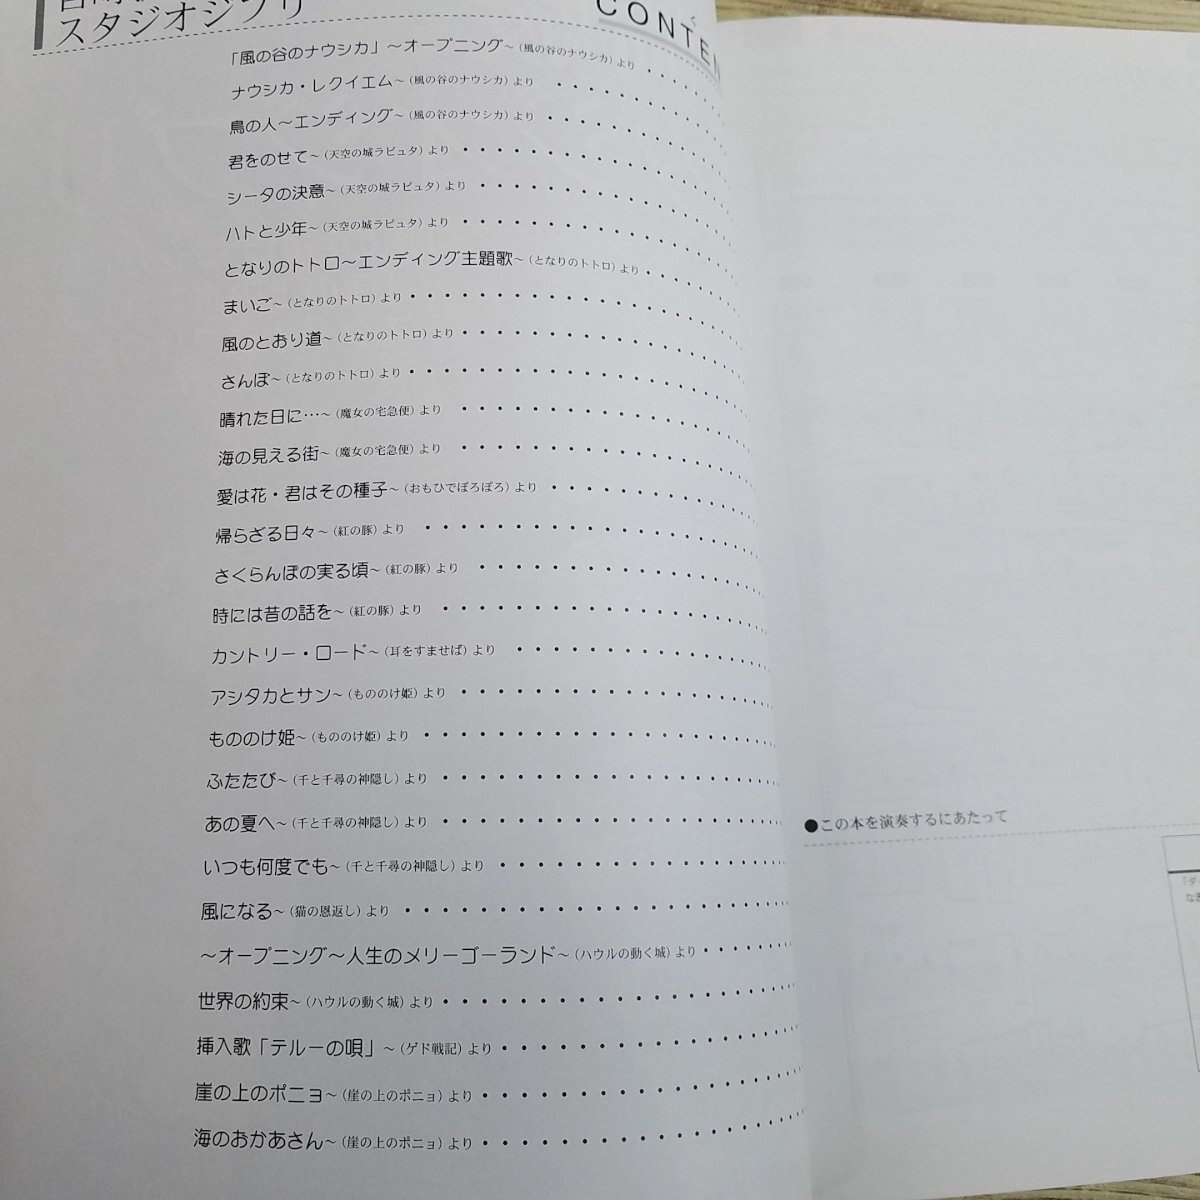 スタジオジブリ
CONTEN
「風の谷のナウシカ」〜オープニング〜(風の谷のナウシカ)より
ナウシカ・レクイエム〜(風の谷のナウシカ)より
鳥の人〜エンディング〜(風の谷のナウシカ)より
君をのせて〜(天空の城ラピュタ)より
シータの決意〜(天空の城ラピュタ)より
ハトと少年〜(天空の城ラピュタ)より
となりのトトロ〜エンディング主題歌〜(となりのトトロ)より
まいご〜(となりのトトロ)より
風のとおり道〜(となりのトトロ)より
さんぽ〜(となりのトトロ)より
晴れた日に…〜(魔女の宅急便)より
海の見える街〜(魔女の宅急便)より
愛は花・君はその種子〜(おもひでぽろぽろ)より
帰らざる日々〜(紅の豚)より
さくらんぼの実る頃〜(紅の豚)より
時には昔の話を〜(紅の豚)より
カントリー・ロード〜(耳をすませば)より
アシタカとサン〜(もののけ姫)より
もののけ姫〜(もののけ姫)より
ふたたび〜(千と千尋の神隠し)より
あの夏へ〜(千と千尋の神隠し)より
いつも何度でも〜(千と千尋の神隠し)より
風になる〜(猫の恩返し)より
〜オープニング〜人生のメリーゴーランド〜(ハウルの動く城)より
世界の約束〜(ハウルの動く城)より
挿入歌「テルーの唄」〜(ゲド戦記)より
崖の上のポニョ〜(崖の上のポニョ)より
海のおかあさん〜(崖の上のポニョ)より
●この本を演奏するにあたって